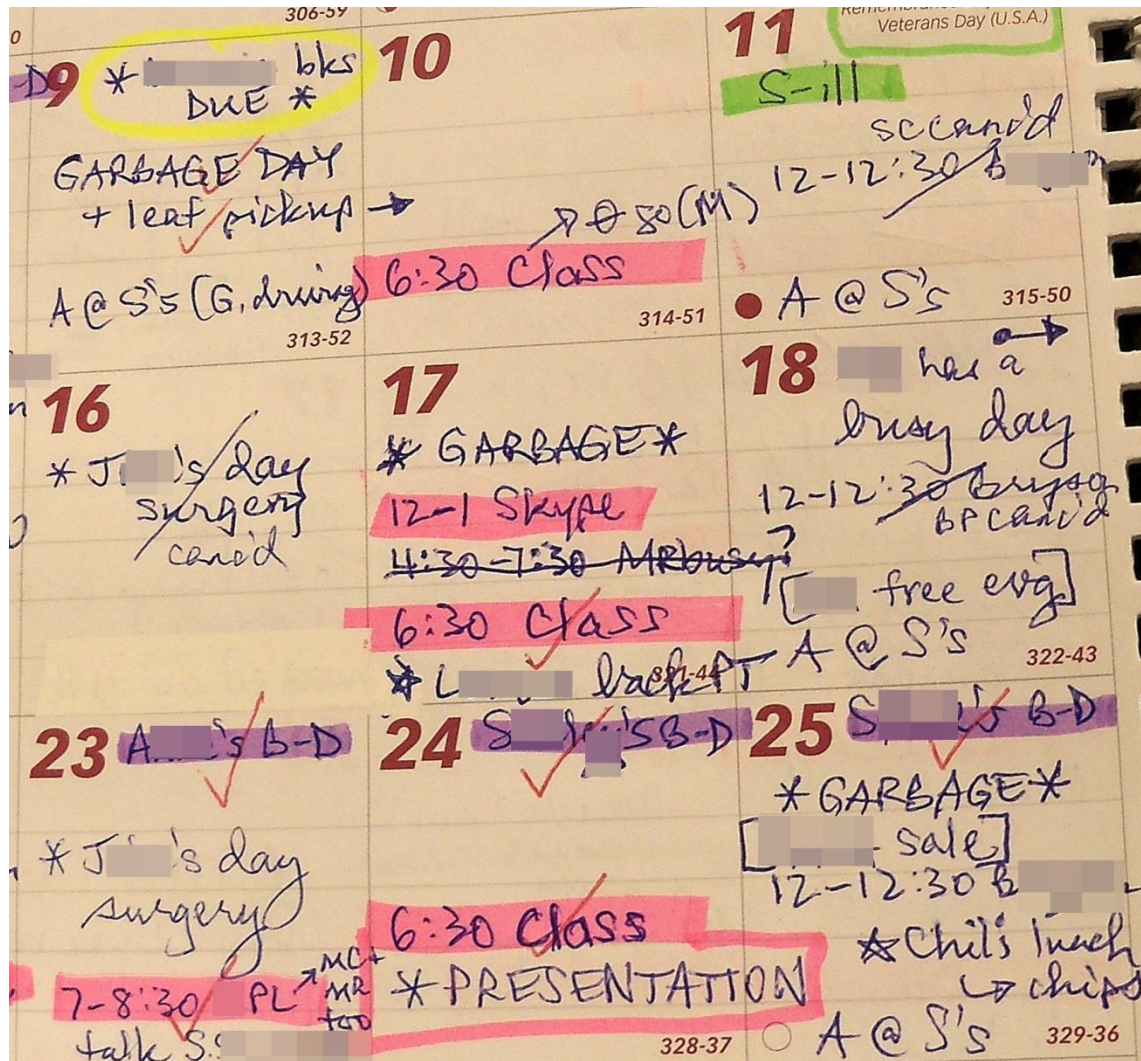 306-59
9 * bks
DUE *
GARBAGE DAY
+ leaf pickup →
A @ S's (G. driving)
313-52
10
80 (M)
6:30 Class
314-51
11
Veterans Day (U.S.A.)
S-ill
12-12:30 B
A @ S's
315-50
16
* J 's day
surgery
canc'd
17
* GARBAGE *
12-1 Skype
4:30-7:30
6:30 Class
* L back PT
18 has a
busy day
12-12:30
BP canc'd
[ free evg]
A @ S's
322-43
23 A 's B-D
* J 's day
surgery
7-8:30 PL → MC +
MR
too
talk S.
24 S 's B-D
6:30 Class
* PRESENTATION
328-37
25 S 's B-D
* GARBAGE *
[ sale]
12-12:30 B
* Chili lunch
↳ chips
A @ S's
329-36